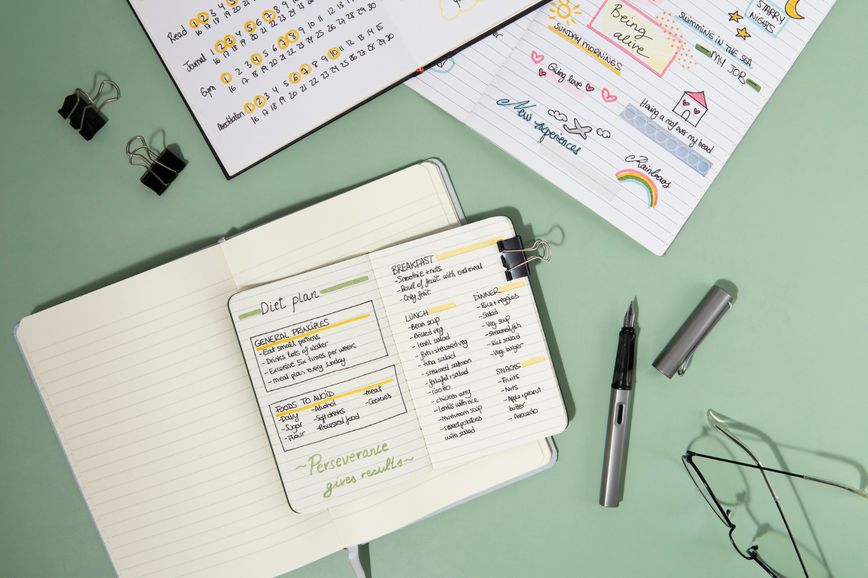 Read 1 2 3 4 5 6 7 8
16 17 18 19 20
Journal 1 2 3 4 5 6 7 8 9 10 11 12
16 17 18 19 20 21 22 23 24
Gym 1 2 3 4 5 6 7 8 9 10 11 12 13 14 15
16 17 18 19 20 21 22 23 24 25 26 27 28 29 30
Meditation 1 2 3 4 5 6 7 8 9 10 11 12 13 14 15
16 17 18 19 20 21 22 23 24 25 26 27 28 29 30
SUNDAY MORNINGS
Being
alive
SWIMMING IN THE SEA
STARRY
NIGHTS
MY JOB
Giving love
New experiences
Having a roof over my head
Rainbows
Diet plan
GENERAL PRINCIPLES
- Eat small portions
- Drinks lots of water
- Excersise six times per week
- meal plan every sunday
FOODS TO AVOID
- Dairy
- Sugar
- Flour
- Alcohol
- Soft drinks
- Processed food
- meat
- Cookies
~Perseverance
gives results~
BREAKFAST
- Smoothie + nuts
- Bowl of fruit with oatmeal
- Only fruit
LUNCH
- Bean soup
- lentil salad
- fish + steamed veg
- tuna salad
- steamed salmon
- falafel + salad
- chicken curry
- Lentils with rice
- mushroom soup
with salad
DINNER
- Rice + veggies
- Salad
- Veg. soup
- Steamed fish
- Rice salad
- Veg. burger
SNACKS
- Fruits
- Nuts
- Apple + peanut
butter
- Avocado